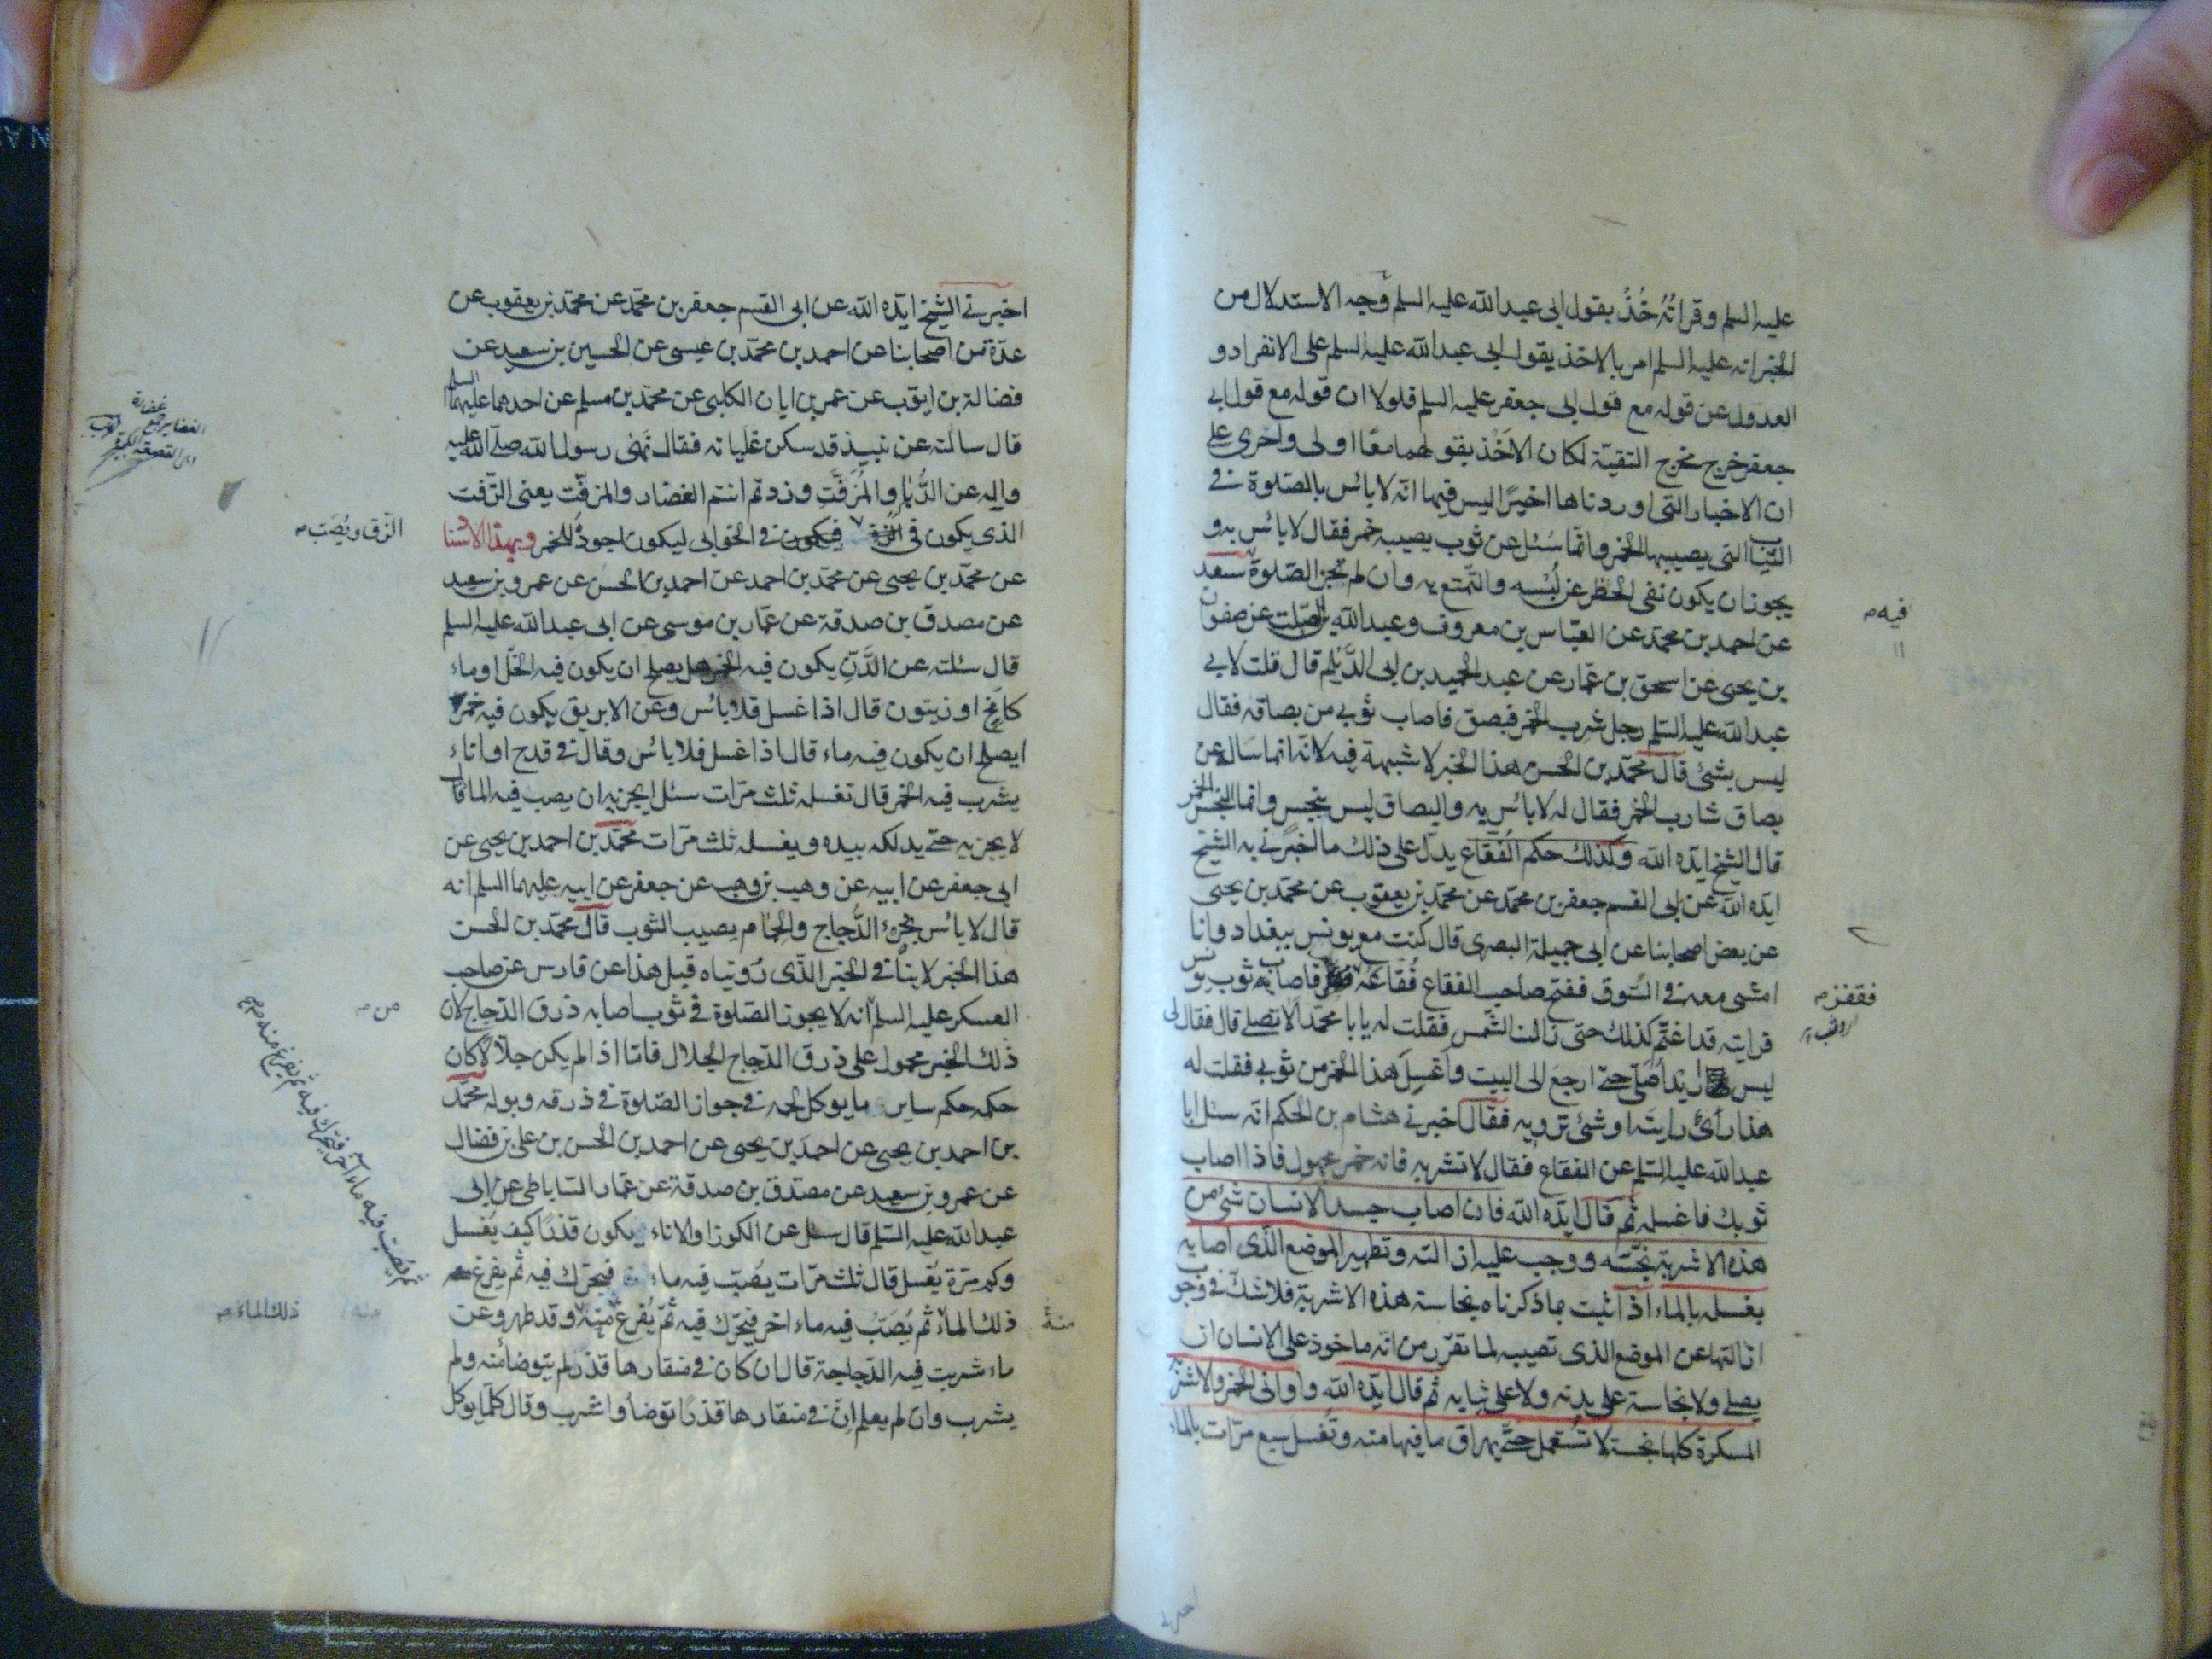 عليه السلم وقراته خُذْ بقول ابى عبد الله عليه السلم وجه الاستدلال من
الخبر انه عليه السلم امر بالاخذ بقول ابى عبد الله عليه السلم على الانفراد و
العدول عن قوله مع قول ابى جعفر عليه السلم فلولا ان قوله مع قول ابى
جعفر خرج مخرج التقية لكان الاَخْذ بقولهما معًا اولى واحرى على
ان الاخبار التى اوردناها اخيرًا ليس فيها انّه لا بائس بالصّلوة فى
الثياب التى يصيبها الخمر وانّما سُئل عن ثوب يصيبه خمر فقال لا بائس به و
يجوز ان يكون نفى الحظر عن لُبْسه والتّمتع به وان لم تجز الصّلوة سعد
فيه م
عن احمد بن محمد عن العبّاس بن معروف وعبد الله بن الصّلت عن صفوان
بن يحيى عن اسحق بن عمّار عن عبد الحميد بن ابى الدَّيْلم قال قلت لابى
عبد الله عليه السّلم رجل شرب الخمر فبصق فاصاب ثوبى من بصاقه فقال
ليس بشئ قال محمّد بن الحسن هذا الخبر لا شبهة فيه لانّه انما سَاله عن
بصاق شارب الخمر فقال له لا بائس به والبصاق ليس بنجس وانما النجس الخمر
قال الشيخ ايّده الله وكذلك حكم الفُقّاع يدلّ على ذلك ما اخبرَنى به الشيخ
ايّده الله عن ابى القسم جعفر بن محمّد عن محمّد بن يعقوب عن محمّد بن يحيى
عن بعض اصحابنا عن ابى جميلة البصرى قال كنت مع يونس ببغداد وانا
امشى معه فى السّوق ففتح صاحب الفقاع فُقاعَه فاصاب ثوب يونس
فقفز م
فرايته قد اغتمّ كذلك حتى زالت الشّمس فقلت له يا با محمّد الا تصلى قال فقال لى
ليس اريد أُصَلّى حتى ارجعَ الى البيت واَغْسِلَ هذا الخمر من ثوبى فقلت له
هذا رأىٌ رايته او شئ ترويه فقال اخبرنى هشام بن الحكم انّه سئل ابا
عبد الله عليه السّلم عن الفقاع فقال لا تشربه فانه خمر مجهول فاذا اصاب
ثوبك فاغسله ثم قال ايّده الله فان اصاب جسد الانسان شئ من
هذه الاشربة نجّسه ووجب عليه ازالته وتطهير الموضع الّذى اصابه
بغسله بالماء اذا ثبت بما ذكرناه نجاسة هذه الاشربة فلا شكّ فى وجوب
ازالتها عن الموضع الذى تصيبه لما تقرّر من انّه ماخوذ على الانسان ان
يصلى ولا نجاسة على بدنه ولا على ثيابه ثم قال ايّده الله واوانى الخمر والاشربة
المسكرة كلها نجسة لا تُستعمل حتّى يهراق ما فيها منه وتُغسل سبع مرّات بالماء
اخبرنى
اخبرنى الشيخ ايّده الله عن ابى القسم جعفر بن محمّد عن محمّد بن يعقوب عن
عدّة من اصحابنا عن احمد بن محمّد بن عيسى عن الحسين بن سعيد عن
فضالة بن ايّوب عن عمر بن ابان الكلبى عن محمّد بن مسلم عن احدهما عليهما السلم
قال سالته عن نبيذ قد سكن غليانه فقال نَهَى رسول الله صلّى الله عليه
واله عن الدُّبّاء والمُزَفَّتِ وزدتم انتم الغضار والمزفّت يعنى الزّفت
الذى يكون فى الزق فيكون فى الخوابى ليكون اجودُ للخمر وبهذا الاسنا
الزّق ويُصَبّ م
عن محمّد بن يحيى عن محمّد بن احمد عن احمد بن الحسن عن عمرو بن سعيد
عن مصدق بن صدقة عن عمّار بن موسى عن ابى عبد الله عليه السلم
قال سئلته عن الدَّنّ يكون فيه الخمر هل يصلح ان يكون فيه الخَلّ او ماء
كامخ او زيتون قال اذا غسل فلا بائس وعن الابريق يكون فيه خمر
ايصلح ان يكون فيه ماء قال اذا غسل فلا بائس وقال فى قدح او اناء
يشرب فيه الخمر قال تغسله ثلث مرّات سئل ايجزيه ان يصب فيه الماء قال
لا يجزيه حتّى يدلكه بيده ويغسله ثلث مرّات محمّد بن احمد بن يحيى عن
ابى جعفر عن ابيه عن وهب بن وهب عن جعفر عن ابيه عليهما السلم انه
قال لا بائس بخرء الدُّجاج والحمام يصيب الثوب قال محمّد بن الحسن
هذا الخبر لا ينافى الخبر الّذى رُوّيناه قبل هذا عن فارس عن صاحب
العسكر عليه السلم انه لا يجوز الصّلوة فى ثوب اصابه ذرق الدّجاج لان
ذلك الخبر محمول على ذرق الدّجاج الجلال فامّا اذا لم يكن جلّالًا كان
حكمه حكم ساير ما يوكل لحمه فى جواز الصّلوة فى ذرقه وبوله محمّد
بن احمد بن يحيى عن احمدَ بن يحيى عن احمد بن الحسن بن على بن فضال
عن عمرو بن سعيد عن مصدّق بن صدقة عن عمّار السّاباطى عن ابى
عبد الله عليه السّلم قال سئل عن الكوز او الاناء يكون قذرًا كيف يُغسل
وكم مرّة يُغسل قال ثلث مرّات يُصَبّ فيه ماء فيحرّك فيه ثم يفرغ منه
ذلك الماءُ ثم يُصَبّ فيه ماء اخر فيحرّك فيه ثمّ يُفرغ منه وقد طهر وعن
ذلك الماء م
ثم يُصَبّ فيه ماء آخر فيحرّك فيه ثم يفرغ منه م
ماء شربت فيه الدّجاجة قال ان كان فى منقارها قذر لم يتوضأ منه ولم
يشرب وان لم يعلم انّ فى منقارها قذرًا توضأ واشرب وقال كلّما يوكل